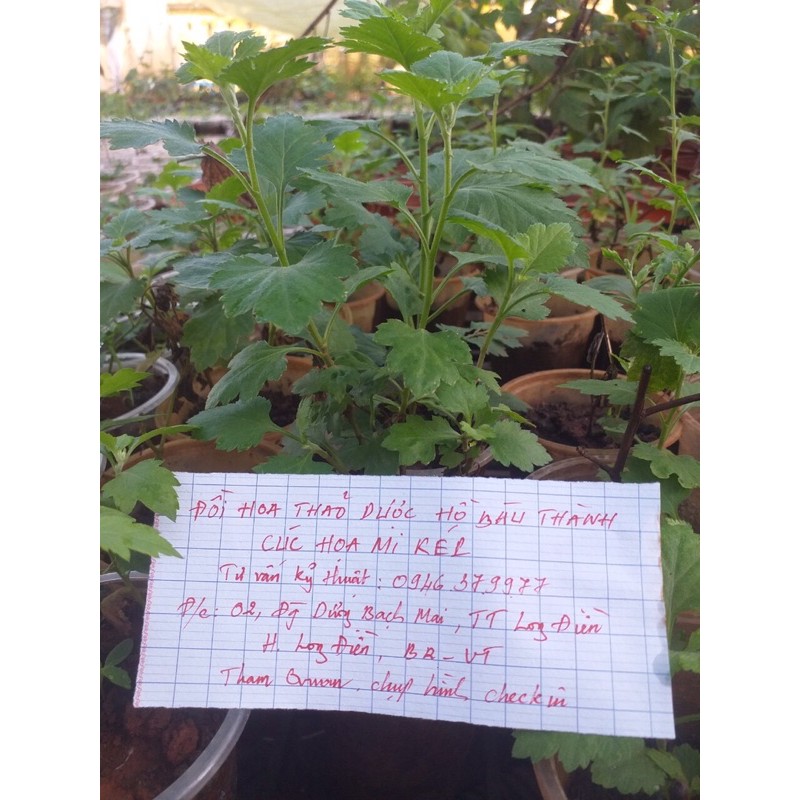 ĐỒI HOA THẢO DƯỢC HỒ BÀU THÀNH
CÚC HOA MI KÉP
Tư vấn kỹ thuật: 0946 379977
Đ/c: 02, Đg Dương Bạch Mai, TT Long Điền
H. Long Điền, BR-VT
Tham Quan. chụp hình. check in